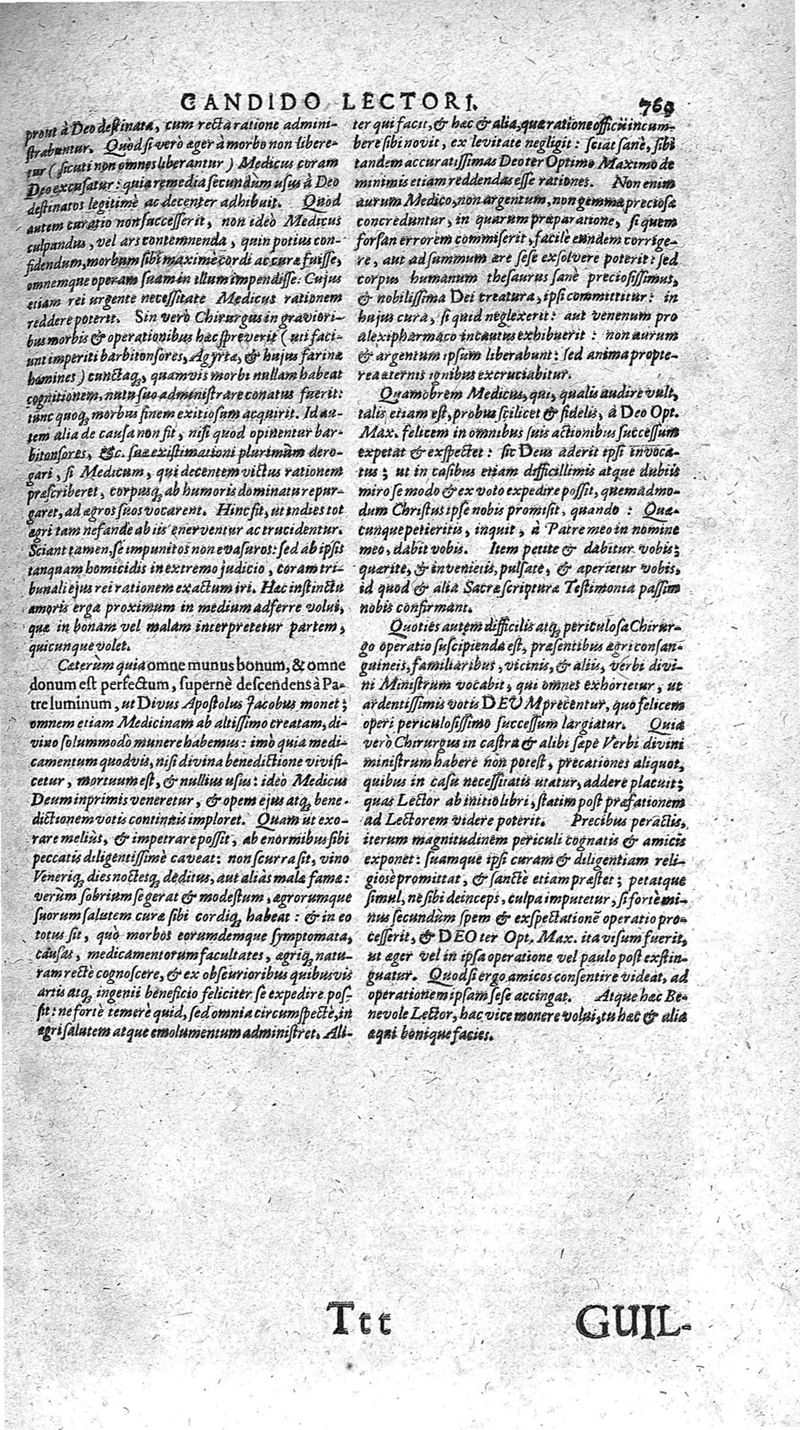 CANDIDO LECTORI. 769
prout à Deo destinata, cum recta ratione admini-
strabuntur. Quòd si verò æger à morbo non libere-
tur (sicuti non omnes liberantur) Medicus coram
Deo excusatur: quia remedia secundùm usus à Deo
destinatos legitimè ac decenter adhibuit. Quod
autem curatio non successerit, non ideò Medicus
culpandus, vel ars contemnenda, quin potius con-
fidendum, morbum sibi maximè cordi ac curæ fuisse,
omnemque operam suam in illum impendisse: Cujus
etiam rei urgente necessitate Medicus rationem
reddere poterit. Sin verò Chirurgus in graviori-
bus morbis & operationibus hæc spreverit (uti faci-
unt imperiti barbitonsores, Agyrtæ, & hujus farinæ
homines) cunctaq́, quamvis morbi nullam habeat
cognitionem, nutu suo administrare conatus fuerit:
tunc quoq́, morbus finem exitiosum acquirit. Id au-
tem alia de causa non fit, nisi quòd opinentur bar-
bitonsores, &c. suæ existimationi plurimùm dero-
gari, si Medicum, qui decentem victus rationem
præscriberet, corpusq́, ab humoris dominatu repur-
garet, ad ægros suos vocarent. Hinc fit, ut indies tot
ægri tam nefandè ab iis enerventur ac trucidentur.
Sciant tamen, se impunitos non evasuros: sed ab ipsis
tanquam homicidis in extremo judicio, coram tri-
bunali ejus rei rationem exactum iri. Hæc instinctu
amoris erga proximum in medium adferre volui,
quæ in bonam vel malam interpretetur partem,
quicunque volet.
Cæterùm quia omne munus bonum, & omne
donum est perfectum, supernè descendens à Pa-
tre luminum, ut Divus Apostolus Jacobus monet;
omnem etiam Medicinam ab altissimo creatam, di-
vino solummodò munere habemus: imò quia medi-
camentum quodvis, nisi divina benedictione vivifi-
cetur, mortuum est, & nullius usus: ideò Medicus
Deum inprimis veneretur, & opem ejus atq́, bene-
dictionem votis continuis imploret. Quam ut exo-
rare meliùs, & impetrare possit, ab enormibus sibi
peccatis diligentissimè caveat: non scurra sit, vino
Veneriq́, dies noctesq́, deditus, aut aliàs malæ famæ:
verùm sobrium se gerat & modestum, ægrorumque
suorum salutem curæ sibi cordiq́, habeat: & in eo
totus sit, quò morbos eorumdemque symptomata,
causas, medicamentorum facultates, ægriq́, natu-
ram rectè cognoscere, & ex obscurioribus quibusvis
artis atq́, ingenii beneficio feliciter se expedire pos-
sit: ne fortè temerè quid, sed omnia circumspectè, in
ægri salutem atque emolumentum administret. Ali-
ter qui facit, & hæc & alia, quæ ratione officii incum-
bere sibi novit, ex levitate negligit: sciat sanè, sibi
tandem accuratissimas Deo ter Optimo Maximo de
minimis etiam reddendas esse rationes. Non enim
aurum Medico, non argentum, non gemmæ preciosæ
concreduntur, in quarum præparatione, si quem
forsan errorem commiserit, facilè eundem corrige-
re, aut ad summum ære sese exsolvere poterit: sed
corpus humanum thesaurus sanè preciosissimus,
& nobilissima Dei creatura, ipsi committitur: in
hujus cura, si quid neglexerit: aut venenum pro
alexipharmaco incautus exhibuerit: non aurum
& argentum ipsum liberabunt: sed anima propte-
rea æternis ignibus excruciabitur.
Quamobrem Medicus, qui, qualis audire vult,
talis etiam est, probus scilicet & fidelis, à Deo Opt.
Max. felicem in omnibus suis actionibus successum
expetat & exspectet: sic Deus aderit ipsi invoca-
tus; ut in casibus etiam difficillimis atque dubiis
miro se modo & ex voto expedire possit, quemadmo-
dum Christus ipse nobis promisit, quando: Quæ-
cunque petieritis, inquit, à Patre meo in nomine
meo, dabit vobis. Item petite & dabitur vobis;
quærite, & invenietis, pulsate, & aperietur vobis,
id quod & alia Sacræ scripturæ Testimonia passim
nobis confirmant.
Quoties autem difficilis atq́, periculosa Chirur-
go operatio suscipienda est, præsentibus ægri consan-
guineis, familiaribus, vicinis, & aliis, verbi divi-
ni Ministrum vocabit, qui omnes exhortetur, ut
ardentissimis votis DEUM precentur, quo felicem
operi periculosissimo successum largiatur. Quia
verò Chirurgus in castra & alibi sæpè Verbi divini
ministrum habere non potest, precationes aliquot,
quibus in casu necessitatis utatur, addere placuit;
quas Lector ab initio libri, statim post præfationem
ad Lectorem videre poterit. Precibus peractis,
iterum magnitudinem periculi cognatis & amicis
exponet: suamque ipsi curam & diligentiam reli-
giosè promittat, & sanctè etiam præstet; petatque
simul, ne sibi deinceps, culpa imputetur, si fortè mi-
nus secundùm spem & exspectationẽ operatio pro-
cesserit, & DEO ter Opt. Max. ita visum fuerit,
ut æger vel in ipsa operatione vel paulo post exstin-
guatur. Quod si ergo amicos consentire videat, ad
operationem ipsam sese accingat. Atque hæc Be-
nevole Lector, hac vice monere volui, tu hæc & alia
æqui bonique facies.
Ttt GUIL-